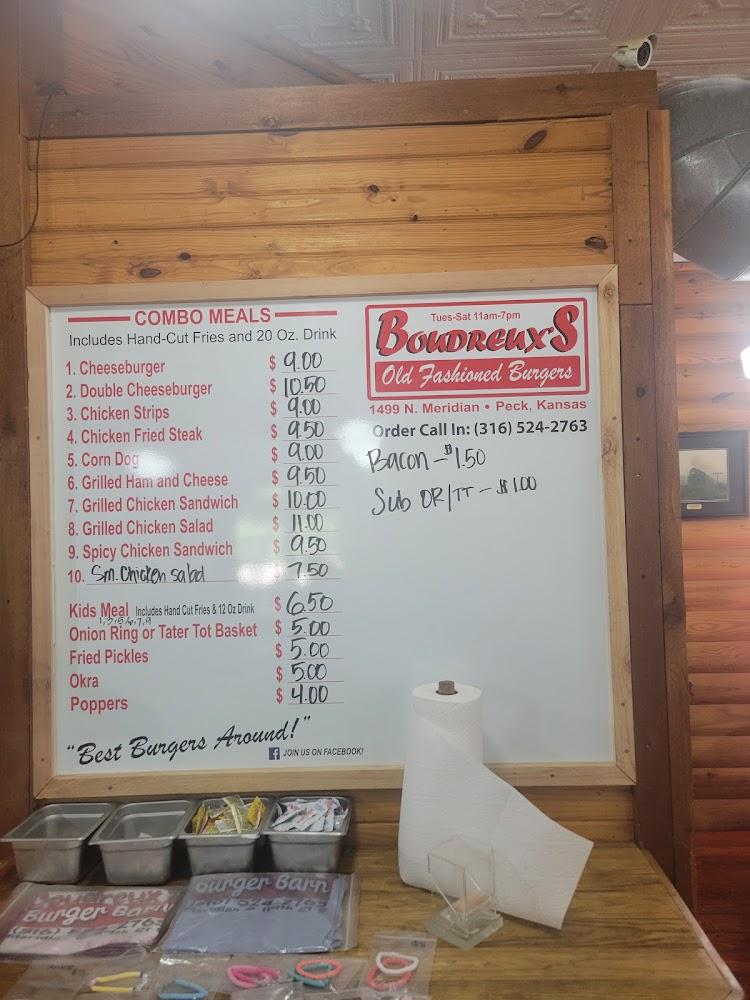 COMBO MEALS
Includes Hand-Cut Fries and 20 Oz. Drink
1. Cheeseburger $ 9.00
2. Double Cheeseburger $ 10.50
3. Chicken Strips $ 9.00
4. Chicken Fried Steak $ 9.50
5. Corn Dog $ 9.00
6. Grilled Ham and Cheese $ 9.50
7. Grilled Chicken Sandwich $ 10.00
8. Grilled Chicken Salad $ 11.00
9. Spicy Chicken Sandwich $ 9.50
10. Sm. Chicken salad $ 7.50
Kids Meal Includes Hand Cut Fries & 12 Oz Drink $ 6.50
Onion Ring or Tater Tot Basket $ 5.00
Fried Pickles $ 5.00
Okra $ 5.00
Poppers $ 4.00
"Best Burgers Around!"
f JOIN US ON FACEBOOK!
Tues-Sat 11am-7pm
BOUDREUX'S
Old Fashioned Burgers
1499 N. Meridian • Peck, Kansas
Order Call In: (316) 524-2763
Bacon - $1.50
Sub OR/TT - $1.00
Burger Barn
(316)
Meridian
Burger Barn
(316) 524-2763
Meridian &